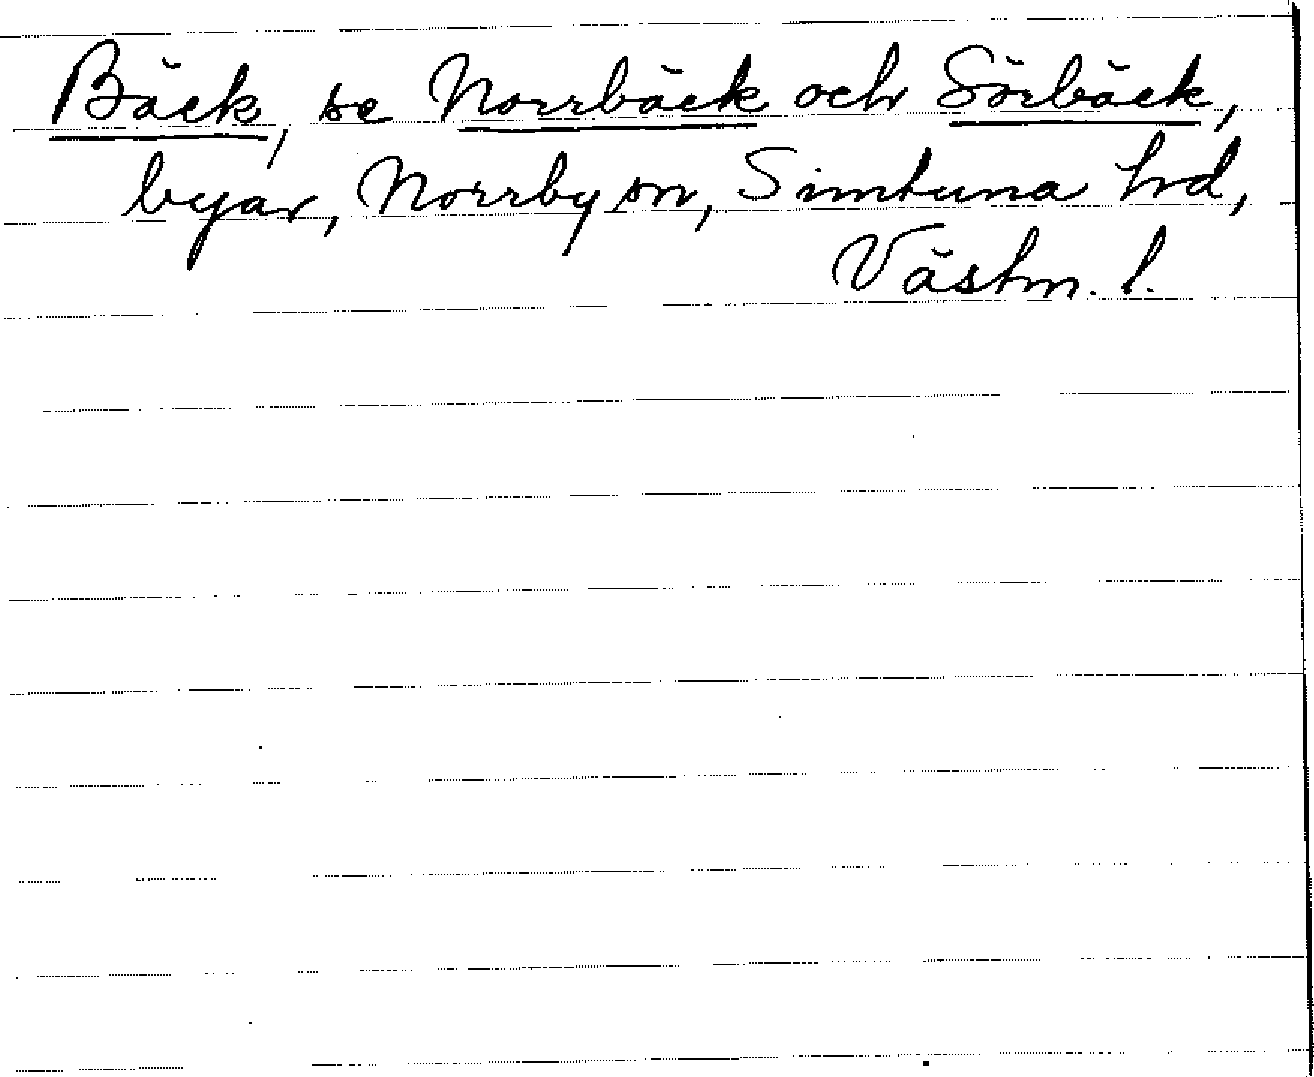 Bäck, se Norrbäck och Sörbäck,
byar, Norrby sn, Simtuna hd,
Västm. l.